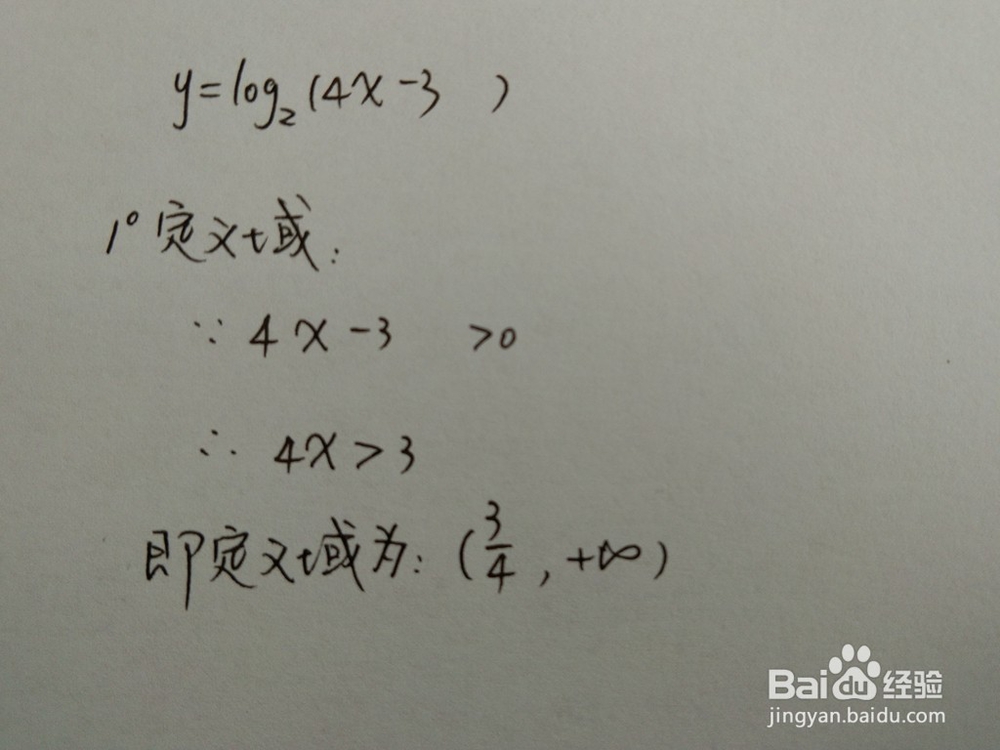 y=log₂(4x-3 )
1° 定义域:
∵ 4x-3 >0
∴ 4x>3
即定义域为: (3/4, +∞)
Baidu 经验
jingyan.baidu.com